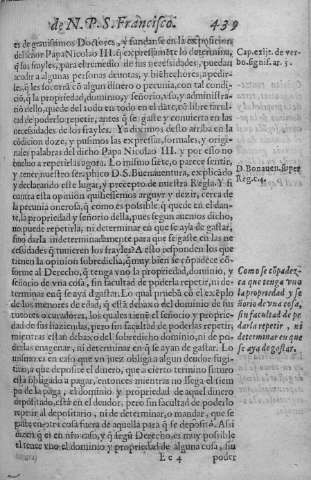 de N. P. S. Francisco. 439
es de gravissimos Doctores, y fundanse en la exposicion
del señor Papa Nicolao III. q̃ expressamẽte lo determina,
q̃ los frayles, para el remedio de sus necessidades, puedan
acudir a algunas personas devotas, y biẽhechores, a pedir-
les, q̃ les socorrã cõ algun dinero o pecunia, con tal condi-
ciõ, q̃ la propriedad, dominio, y señorio, uso, y administra-
ciõ dello, quede del todo en todo en el datẽ, cõ libre facul-
tad de poderlo repetir, antes q̃ se gaste y convierta en las
necesidades de los frayles. Ya diximos desto arriba en la
cõdicion doze, y pusimos las expressas, formales, y origi-
nales palabras del dicho Papa Nicolao III. y por esso no
buelvo a repetirlas agora. Lo mismo siete, o parece sentir,
y tener nuestro seraphico D. S. Buenaventura, explicãdo
y declarando este lugar, y precepto de nuestra Regla. Y si
contra esta opinion quisiessemos arguyr y dezir, cerca de
la pecunia onerosa, q̃ como es possible, q̃ quede en el dan-
te, la propriedad y señorio della, pues segun avemos dicho,
no puede repetirla, ni determinar en que se aya de gastar,
sino darla indeterminadamente para que se gaste en las ne
cessidades q̃ tuvieren los frayles? A esto responden los que
tienen la opinion sobredicha, q̃ muy bien se cõpadece cõ-
forme al Derecho, q̃ tenga vno la propriedad, dominio, y
señorio de vna cosa, sin facultad de poderla repetir, ni de-
terminar en q̃ se aya d̃ gastar. Lo qual pruebã cõ el exẽplo
de los menores de edad, q̃ està debaxo del dominio de sus
tutores o curadores, los quales tienẽ el señorio y proprie-
dad de sus haziendas, pero sin facultad de poderlas repetir,
mientras estan debaxo del sobredicho dominio, ni de po-
derlas enagenar, ni determinar en q̃ se ayan de gastar. Lo
mismo es en caso que un juez obliga a algun deudor fugi-
tivo, a que deposite el dinero, que a cierto termino futuro
està obligado a pagar, entonces mientras no llega el tiem
po de la paga, el dominio y propriedad de aquel dinero
depositado, està en el deudor, pero sin facultad de poderlo
repetir al depositario, ni de determinar, o mandar, que se
gaste en otra cosa fuera de aquella para q̃ se deposito. Assi
dizen q̃ es en nr̃o caso, y q̃ segũ Derecho, es muy possible
el tener vno el dominio y propriedad de alguna cosa, sin
E e 4 poder
Cap. exijt. de ver-
bo. signif. ar. 5.
D. Bonaven. super
Reg. c. 4.
Como se cõpadez-
ca que tenga vno
la propriedad y se
ñorio de vna cosa,
sin facultad de po-
derla repetir, ni
determinar en que
se aya de gastar.